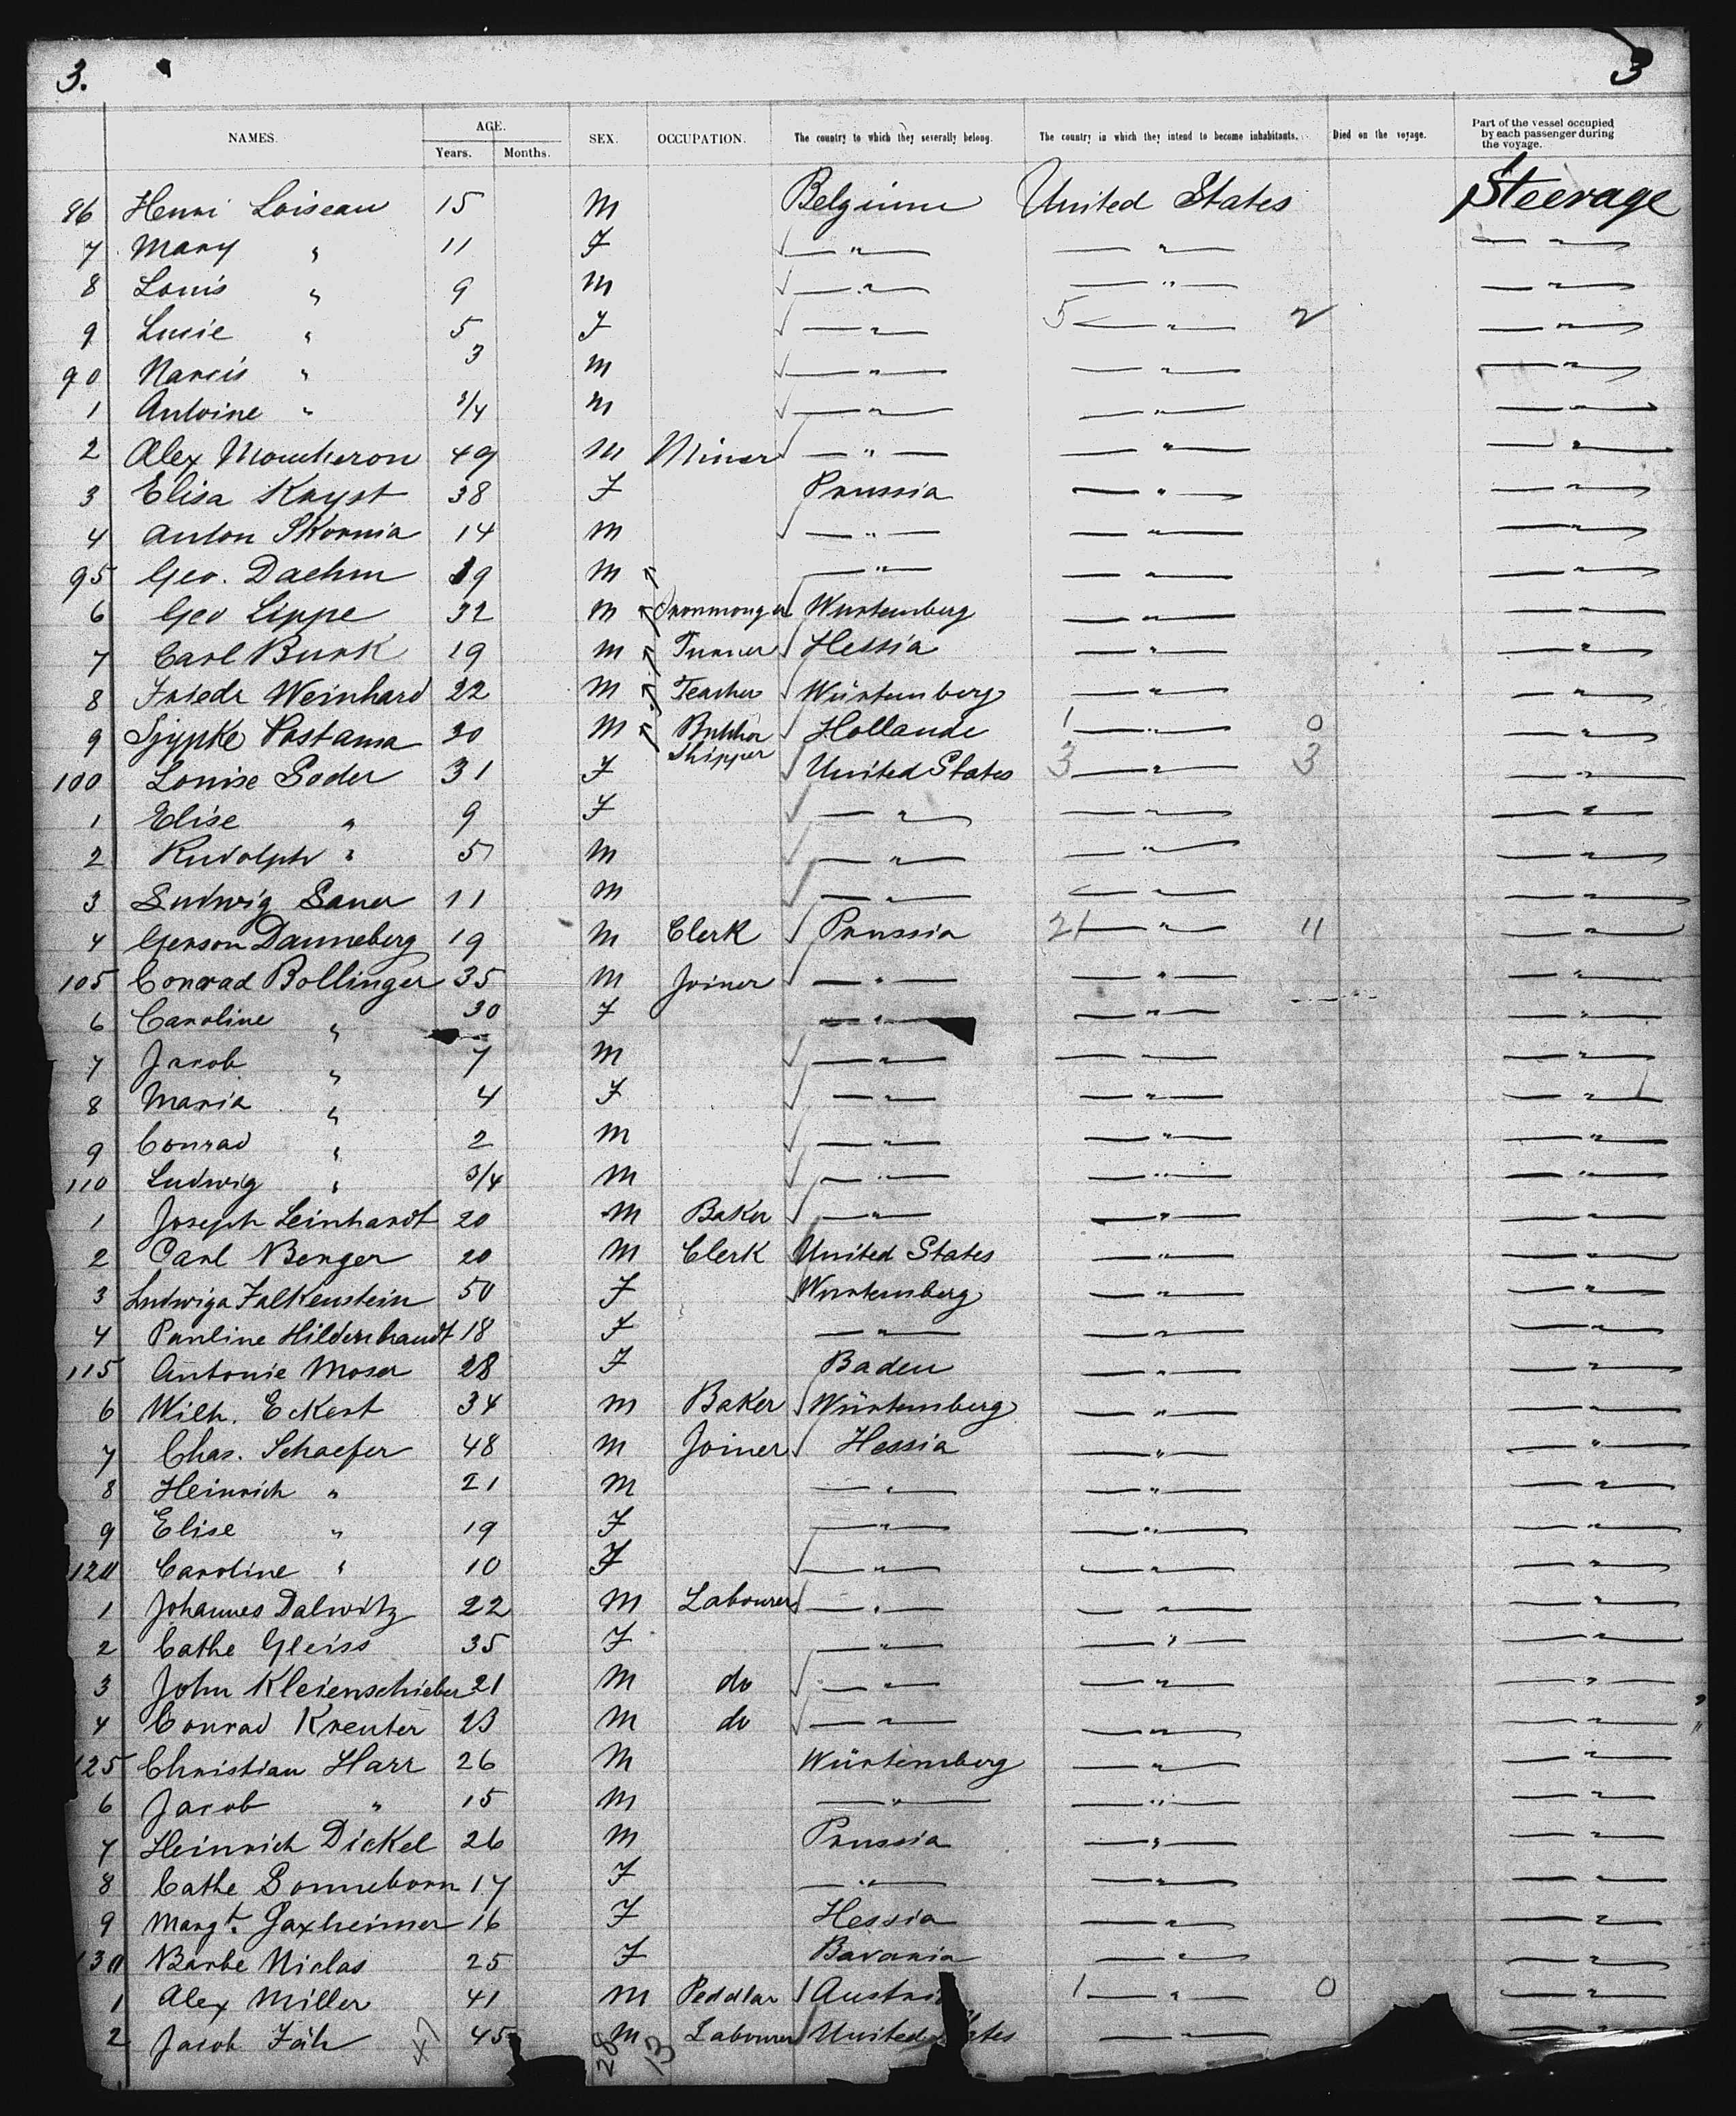 3. 3
NAMES. AGE. Years. Months. SEX. OCCUPATION. The country to which they severally belong. The country in which they intend to become inhabitants. Died on the voyage. Part of the vessel occupied by each passenger during the voyage.
86 Henri Loiseau 15 M Belgium United States Steerage
7 Mary " 11 F " " "
8 Louis " 9 M " " "
9 Lucie " 5 F " 5 " 2 "
90 Narcis " 3 M " " "
1 Antoine " 3/4 M " " "
2 Alex Moucheron 49 M Miner " " "
3 Elisa Kryst 38 F Prussia " "
4 Anton Skornia 14 M " " "
95 Geo. Daehm 19 M " " "
6 Geo Lippe 32 M Ironmonger Wurtemberg " "
7 Carl Burk 19 M Turner Hessia " "
8 Friedr Weinhard 22 M Teacher Würtemberg " "
9 Sjypke Postama 20 M Shipper Hollande 1 " 0 "
100 Louise Soder 31 F United States 3 " 3 "
1 Elise " 9 F " " "
2 Rudolph " 5 M " " "
3 Ludwig Sauer 11 M " " "
4 Gerson Danneberg 19 M Clerk Prussia 21 " 11 "
105 Conrad Bollinger 35 M Joiner " " "
6 Caroline " 30 F " " "
7 Jacob " 7 M " " "
8 Maria " 4 F " " "
9 Conrad " 2 M " " "
110 Ludwig " 3/4 M " " "
1 Joseph Leinhardt 20 M Baker " " "
2 Carl Berger 20 M Clerk United States " "
3 Ludwiga Falkenstein 50 F Wurtemberg " "
4 Pauline Hildenbrandt 18 F " " "
115 Antonie Moser 28 F Baden " "
6 Wilh. Eckert 34 M Baker Würtemberg " "
7 Chas. Schaefer 48 M Joiner Hessia " "
8 Heinrich " 21 M " " "
9 Elise " 19 F " " "
120 Caroline " 10 F " " "
1 Johannes Dalwitz 22 M Labourer " " "
2 Cathe Gleiss 35 F " " "
3 John Kleienschieber 21 M do " " "
4 Conrad Kreuter 23 M do " " "
125 Christian Harr 26 M Würtemberg " "
6 Jacob " 15 M " " "
7 Heinrich Dickel 26 M Prussia " "
8 Cathe Sonneborn 17 F " " "
9 Margt. Gaxheimer 16 F Hessia " "
130 Barbe Niclas 25 F Bavaria " "
1 Alex Miller 41 M Peddlar Austri 1 " 0 "
2 Jacob Fäh 45 M Labourer United States " "
47 28 13